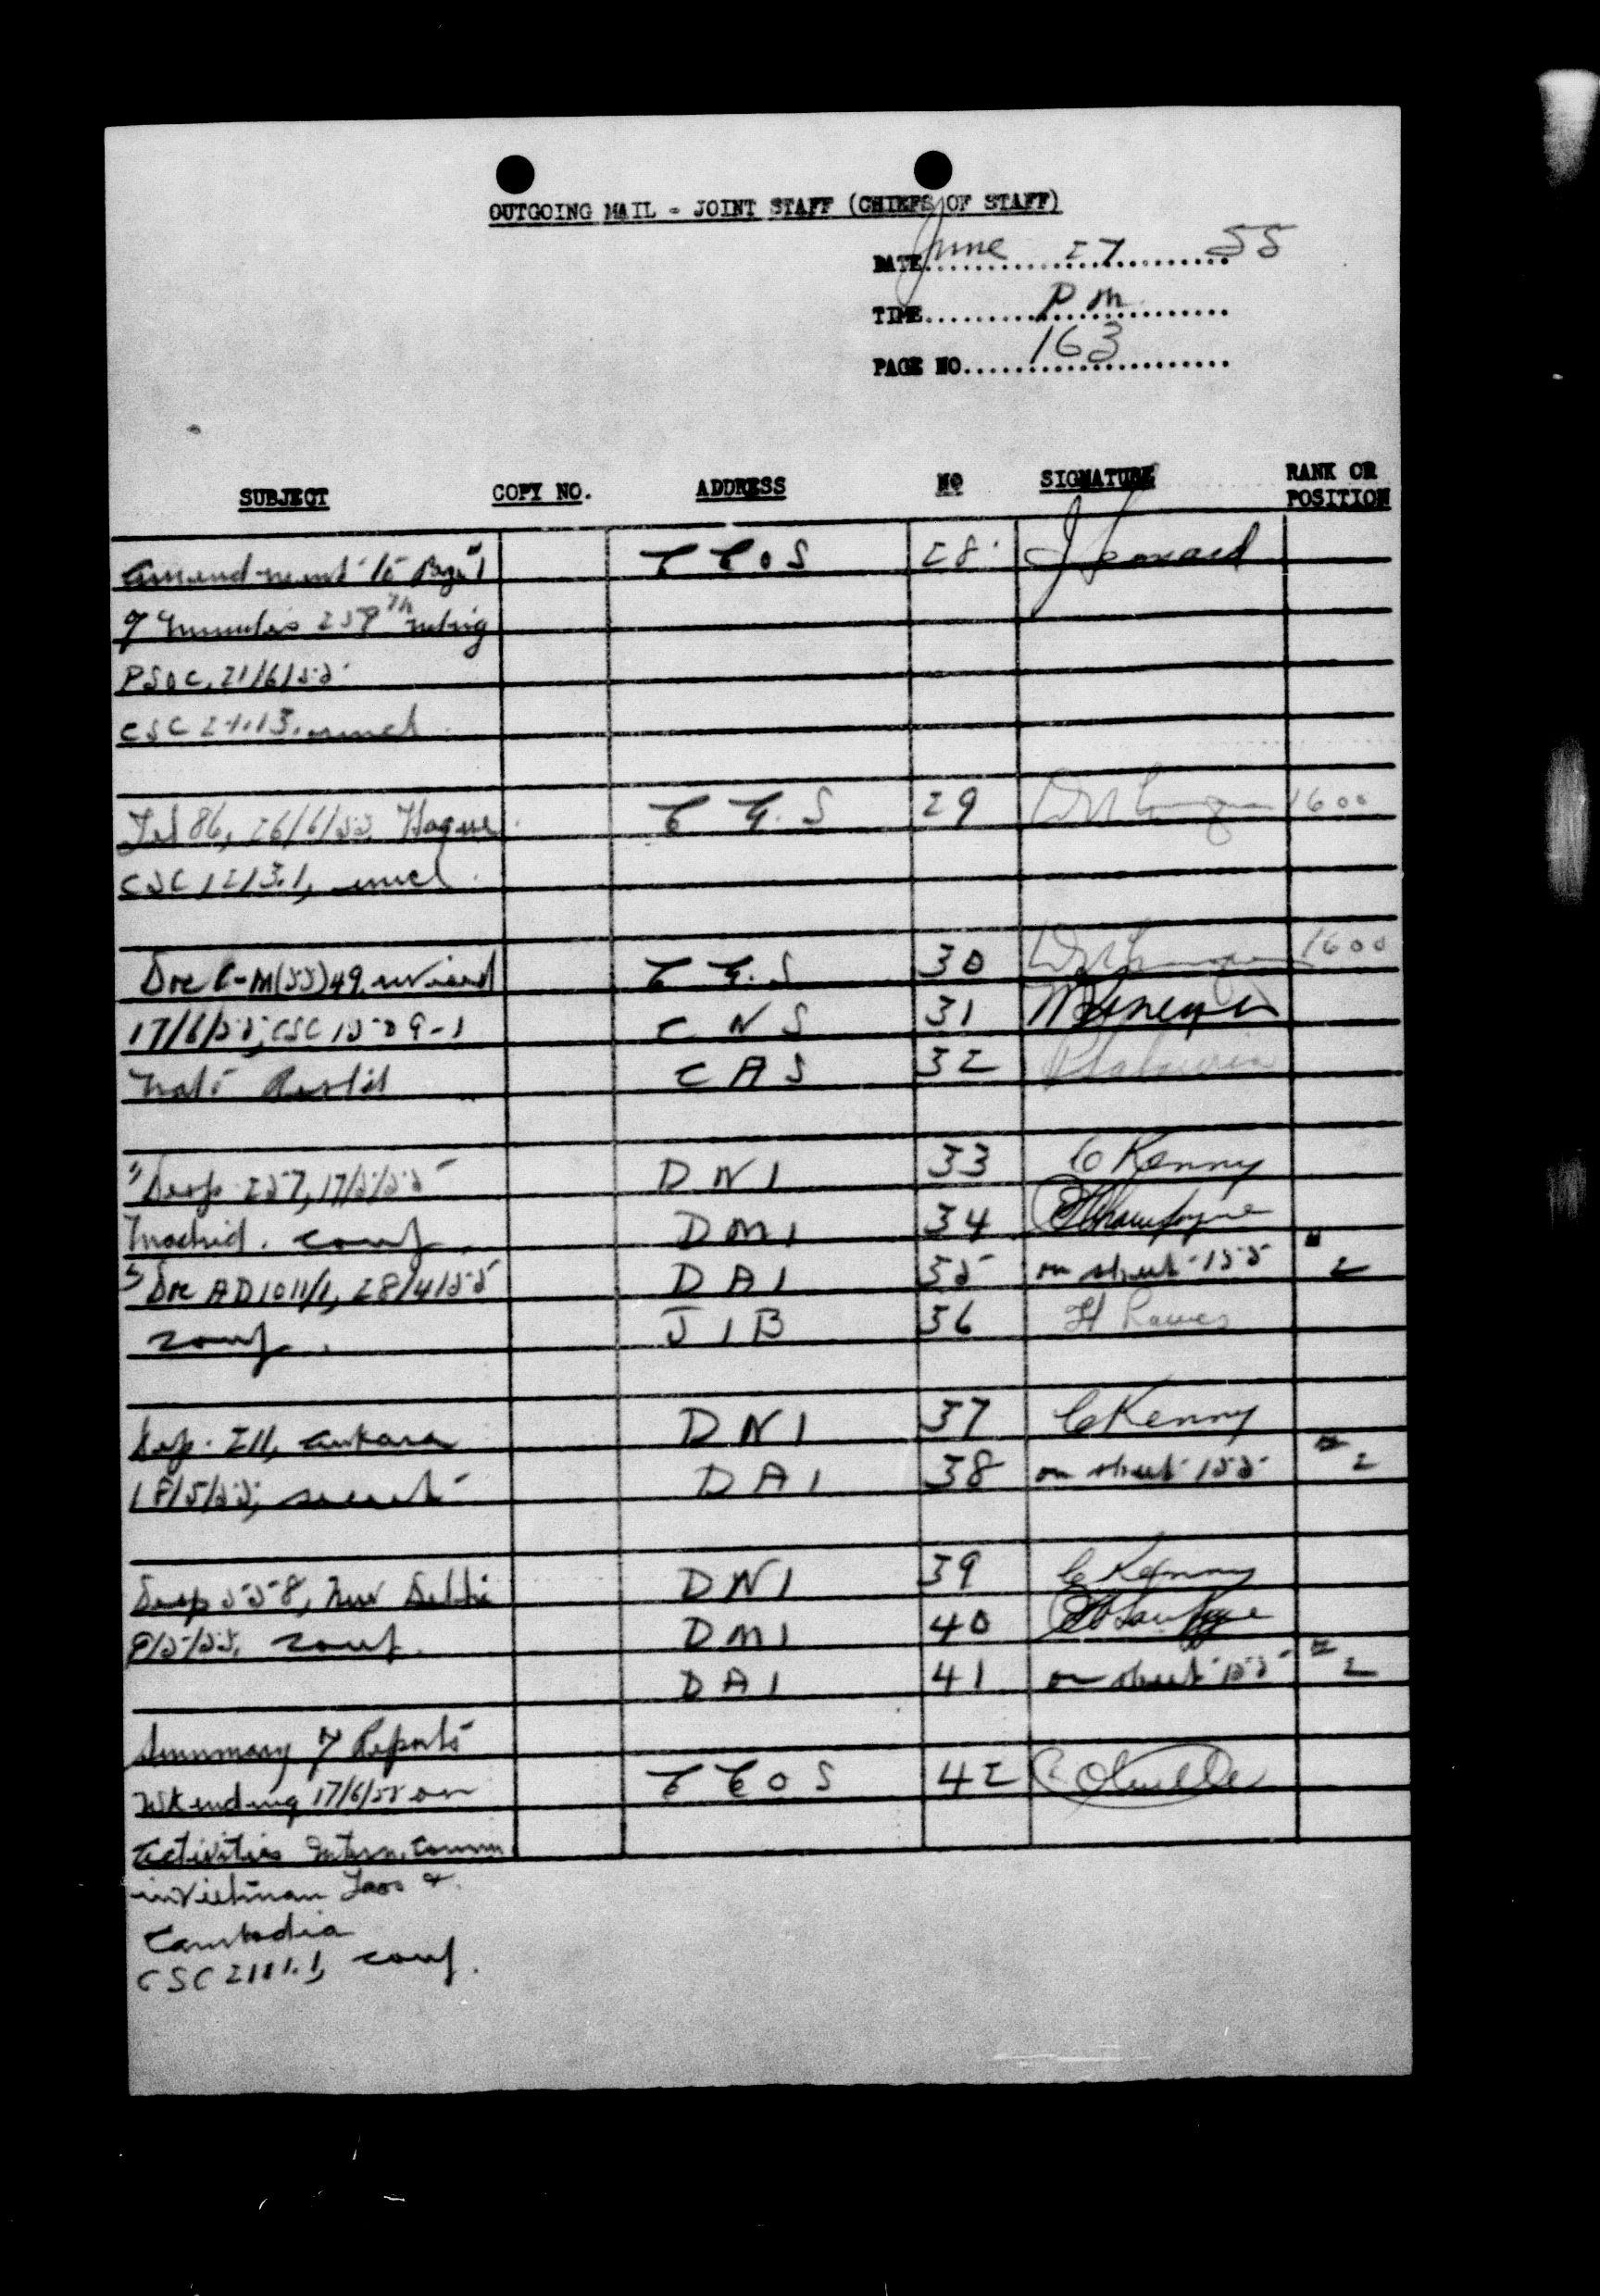 OUTGOING MAIL - JOINT STAFF (CHIEFS OF STAFF)
DATE June 27 55
TIME pm
PAGE NO. 163
SUBJECT COPY NO. ADDRESS NO SIGNATURE RANK OR POSITION
Amendment to Page 1 CCOS 28
of Minutes meeting
PSOC, 21/6/55
CSC
Tel 86, 26/6/55, Hague CGS 29 1600
CSC 1213.1, uncl.
Doc C-M(55)49 revised CGS 30 1600
17/6/55, CSC 1509-1 CNS 31
Nato Rest'd CAS 32
Desp 257, 17/5/55 DNI 33 C Kenny
Madrid. conf. DMI 34
Doc AD1011/1, 28/4/55 DAI 35 on sheet 155 2
conf. JIB 36
Desp. 211, Ankara DNI 37 C Kenny
18/5/55, secret DAI 38 on sheet 155 2
Desp 558, New Delhi DNI 39 C Kenny
conf. DMI 40
DAI 41 on sheet 155 2
Summary of Reports
Wk ending 17/6/55 on CCOS 42
Activities Intern. Comm
in Vietnam Laos &
Cambodia
CSC 2181.1, conf.